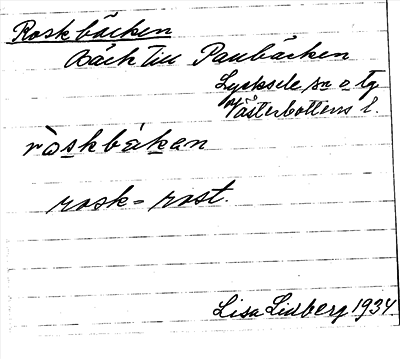 Roskbäcken
Bäck till Paubäcken
Lycksele sn o tg
Västerbottens l.
ròskbákan
rosk = rost.
Lisa Lidberg 1934